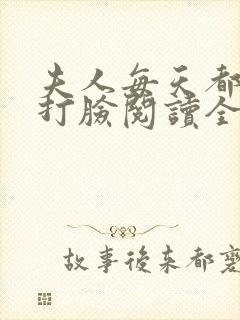 夫人每天都
打臉閱讀全
故事後來都